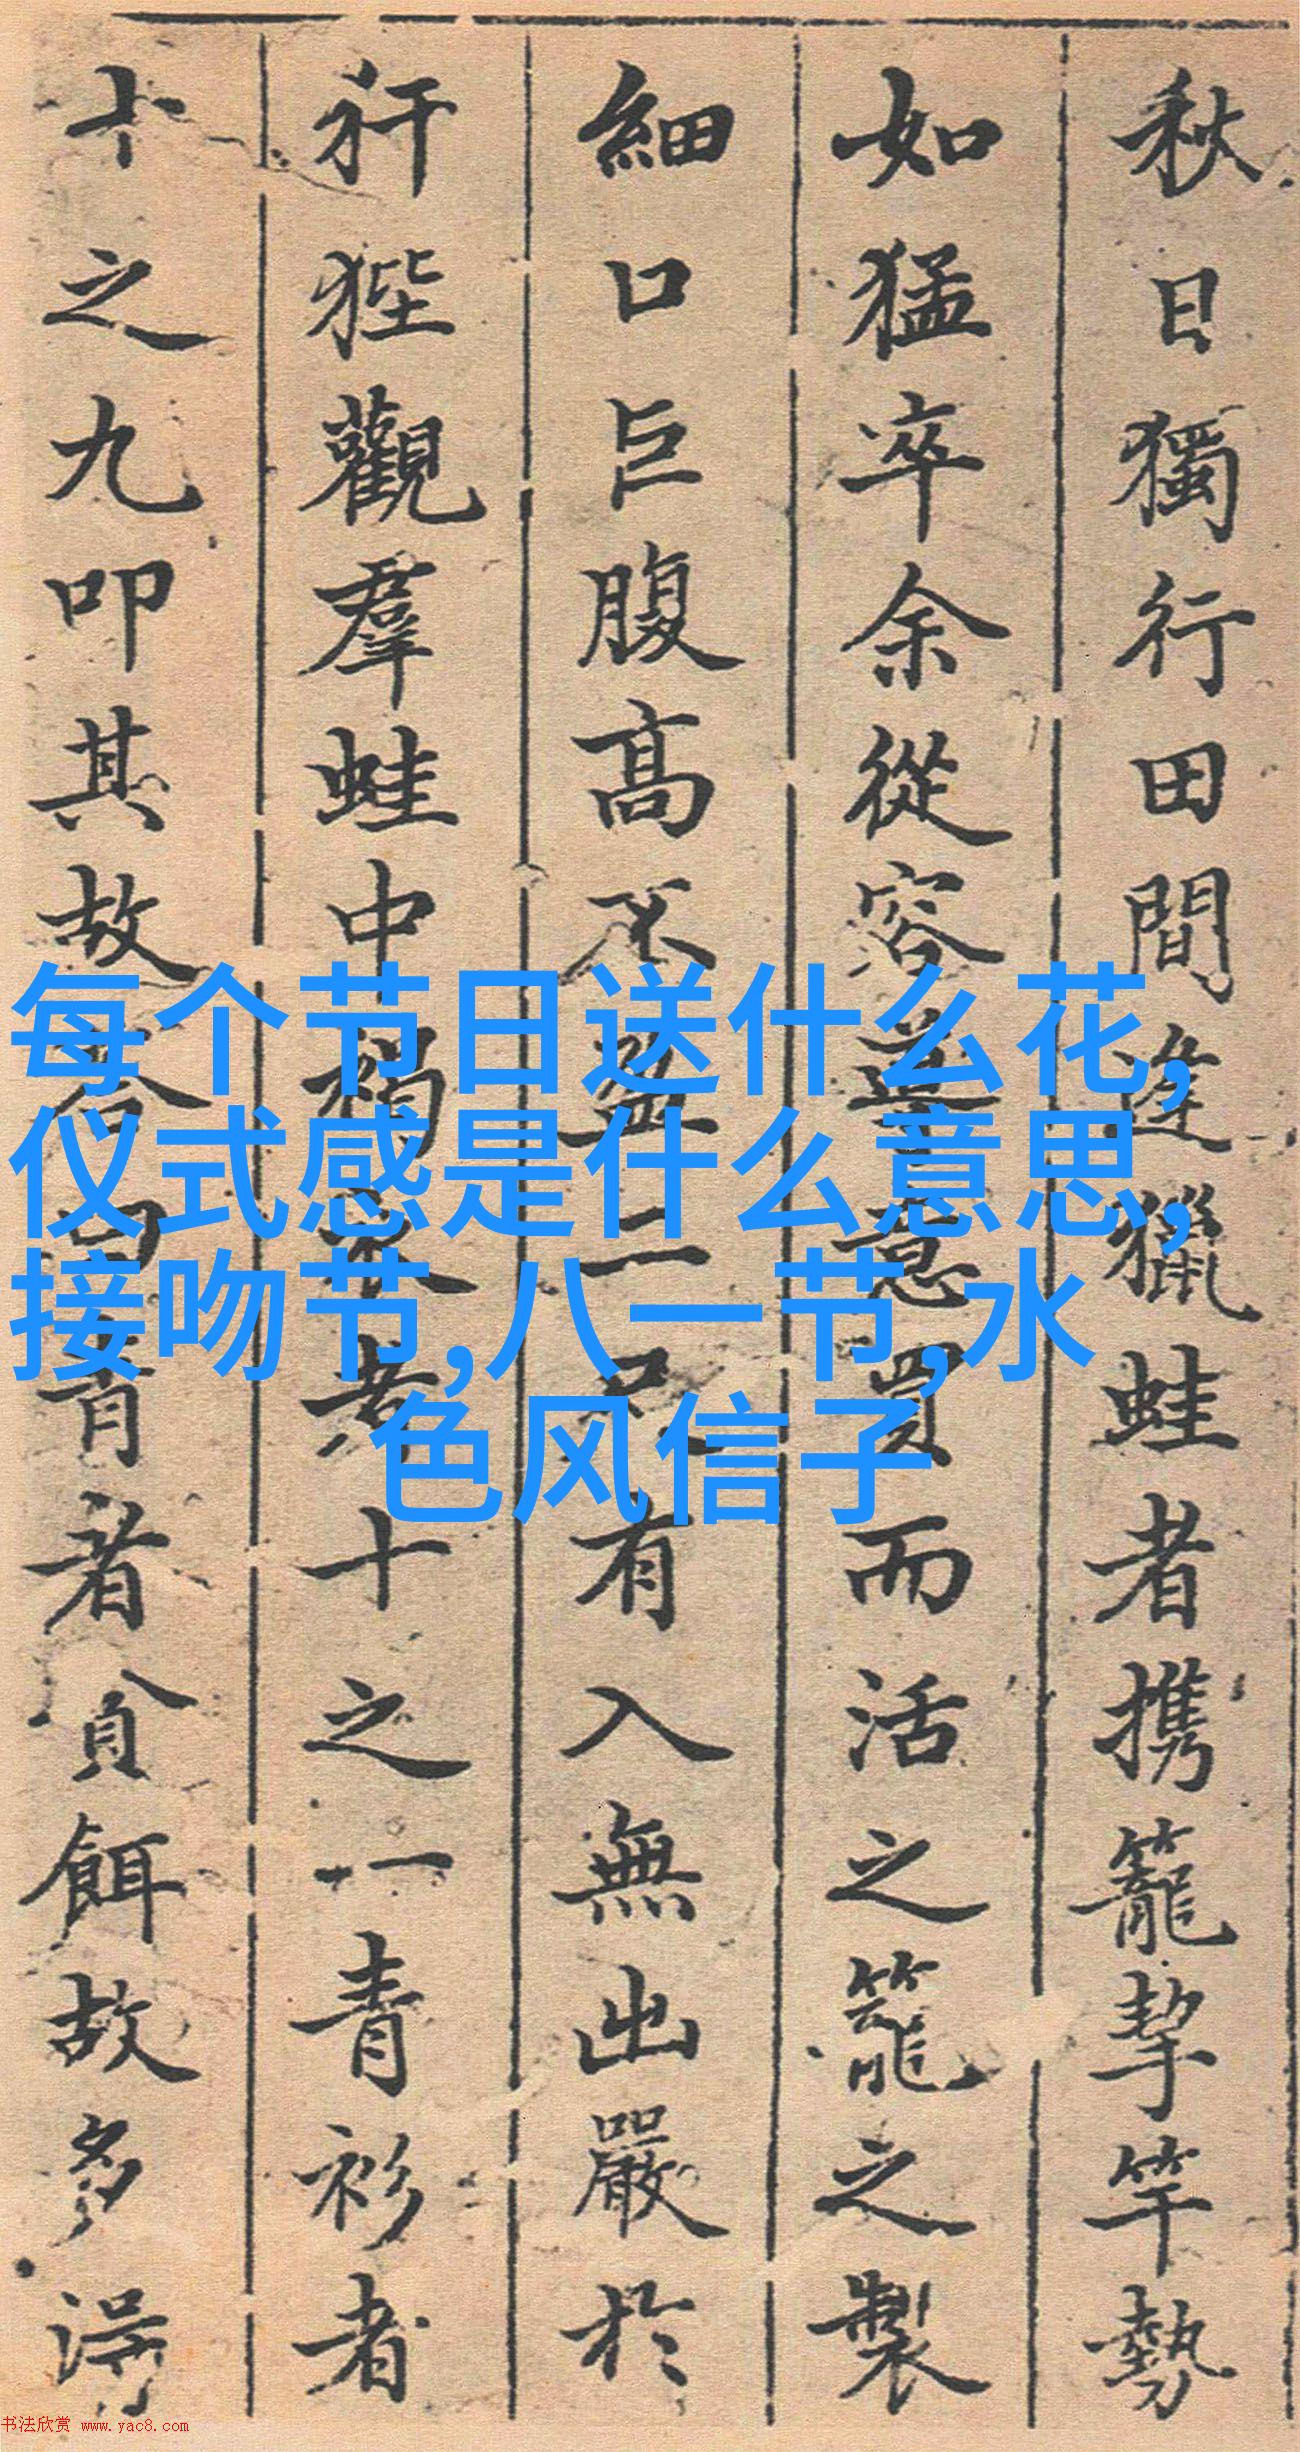 秋日獨行田間逢獵蛙者携籠挈竿勢
如猛卒余從容意買而活之籠之製
細口巨腹高不盈二尺有入無出嚴於
犴狴觀羣蛙中褐衣者十之一青衫者
十之九叩其故答曰青者貪餌故多得
每个节日送什么花,
仪式感是什么意思,
接吻节,八一节,水
色风信子
书法欣赏 www.yac8.com